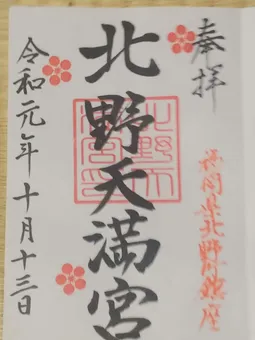 奉拝
福岡県北野町鎮座
北野天満宮
令和元年十月十三日